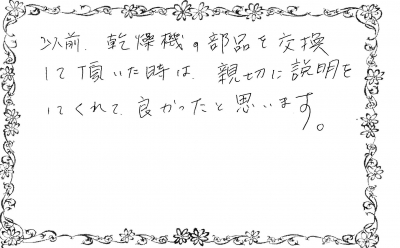 以前、乾燥機の部品を交換
して頂いた時は、親切に説明を
してくれて、良かったと思います。